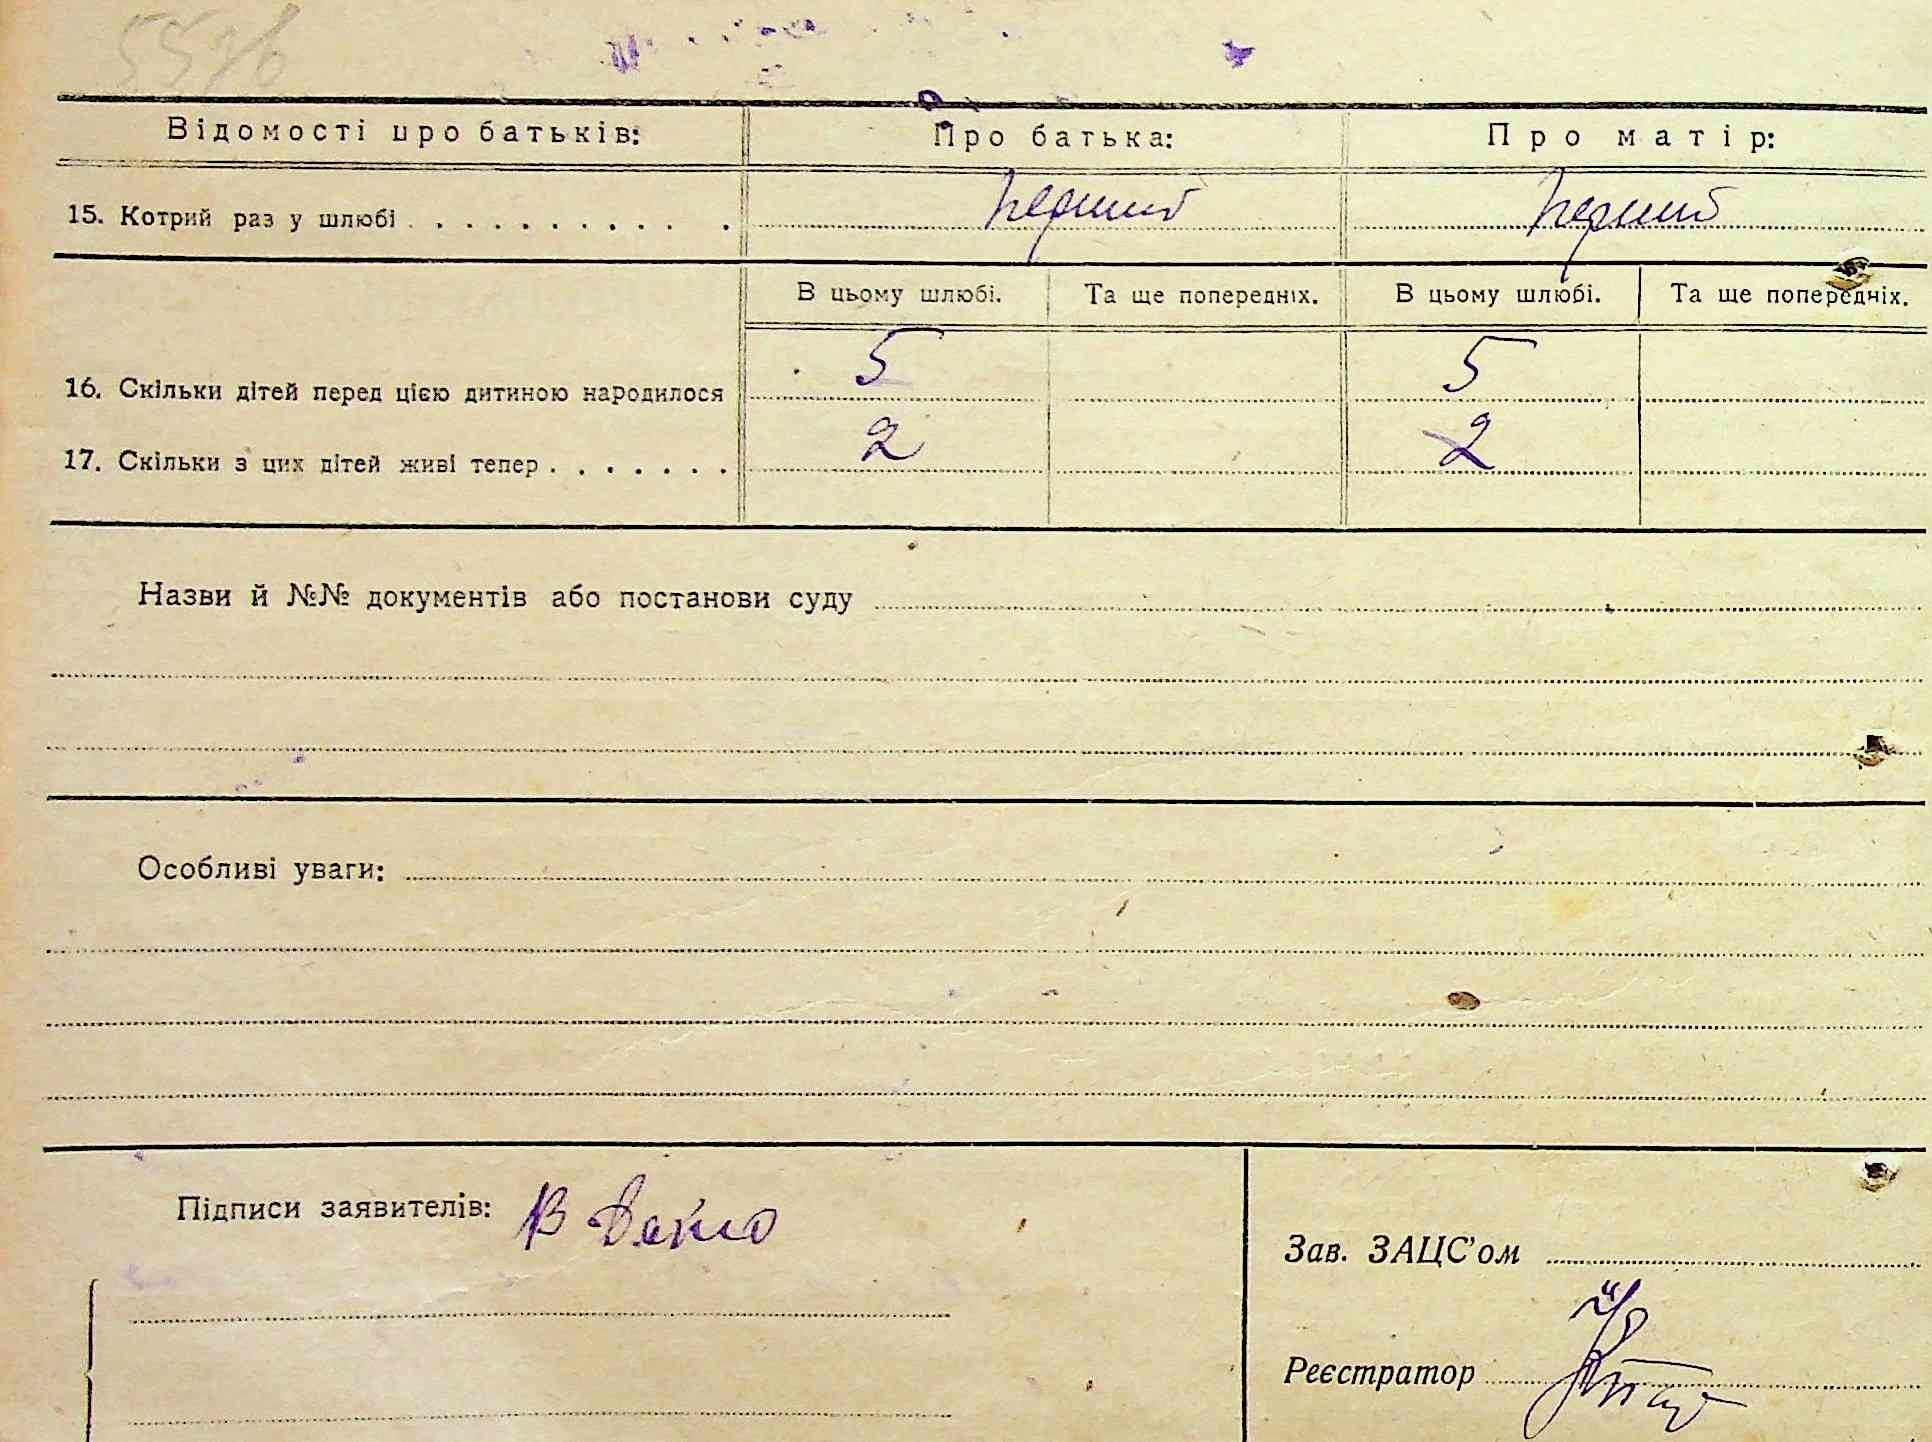 5576
Відомості про батьків: Про батька: Про матір:
15. Котрий раз у шлюбі . . . . . . . . . . . перший перший
В цьому шлюбі. Та ще попередніх. В цьому шлюбі. Та ще попередніх.
16. Скільки дітей перед цією дитиною народилося 5 5
17. Скільки з цих дітей живі тепер . . . . . . . 2 2
Назви й №№ документів або постанови суду
Особливі уваги:
Підписи заявителів: В
Зав. ЗАЦС’ом
Реєстратор